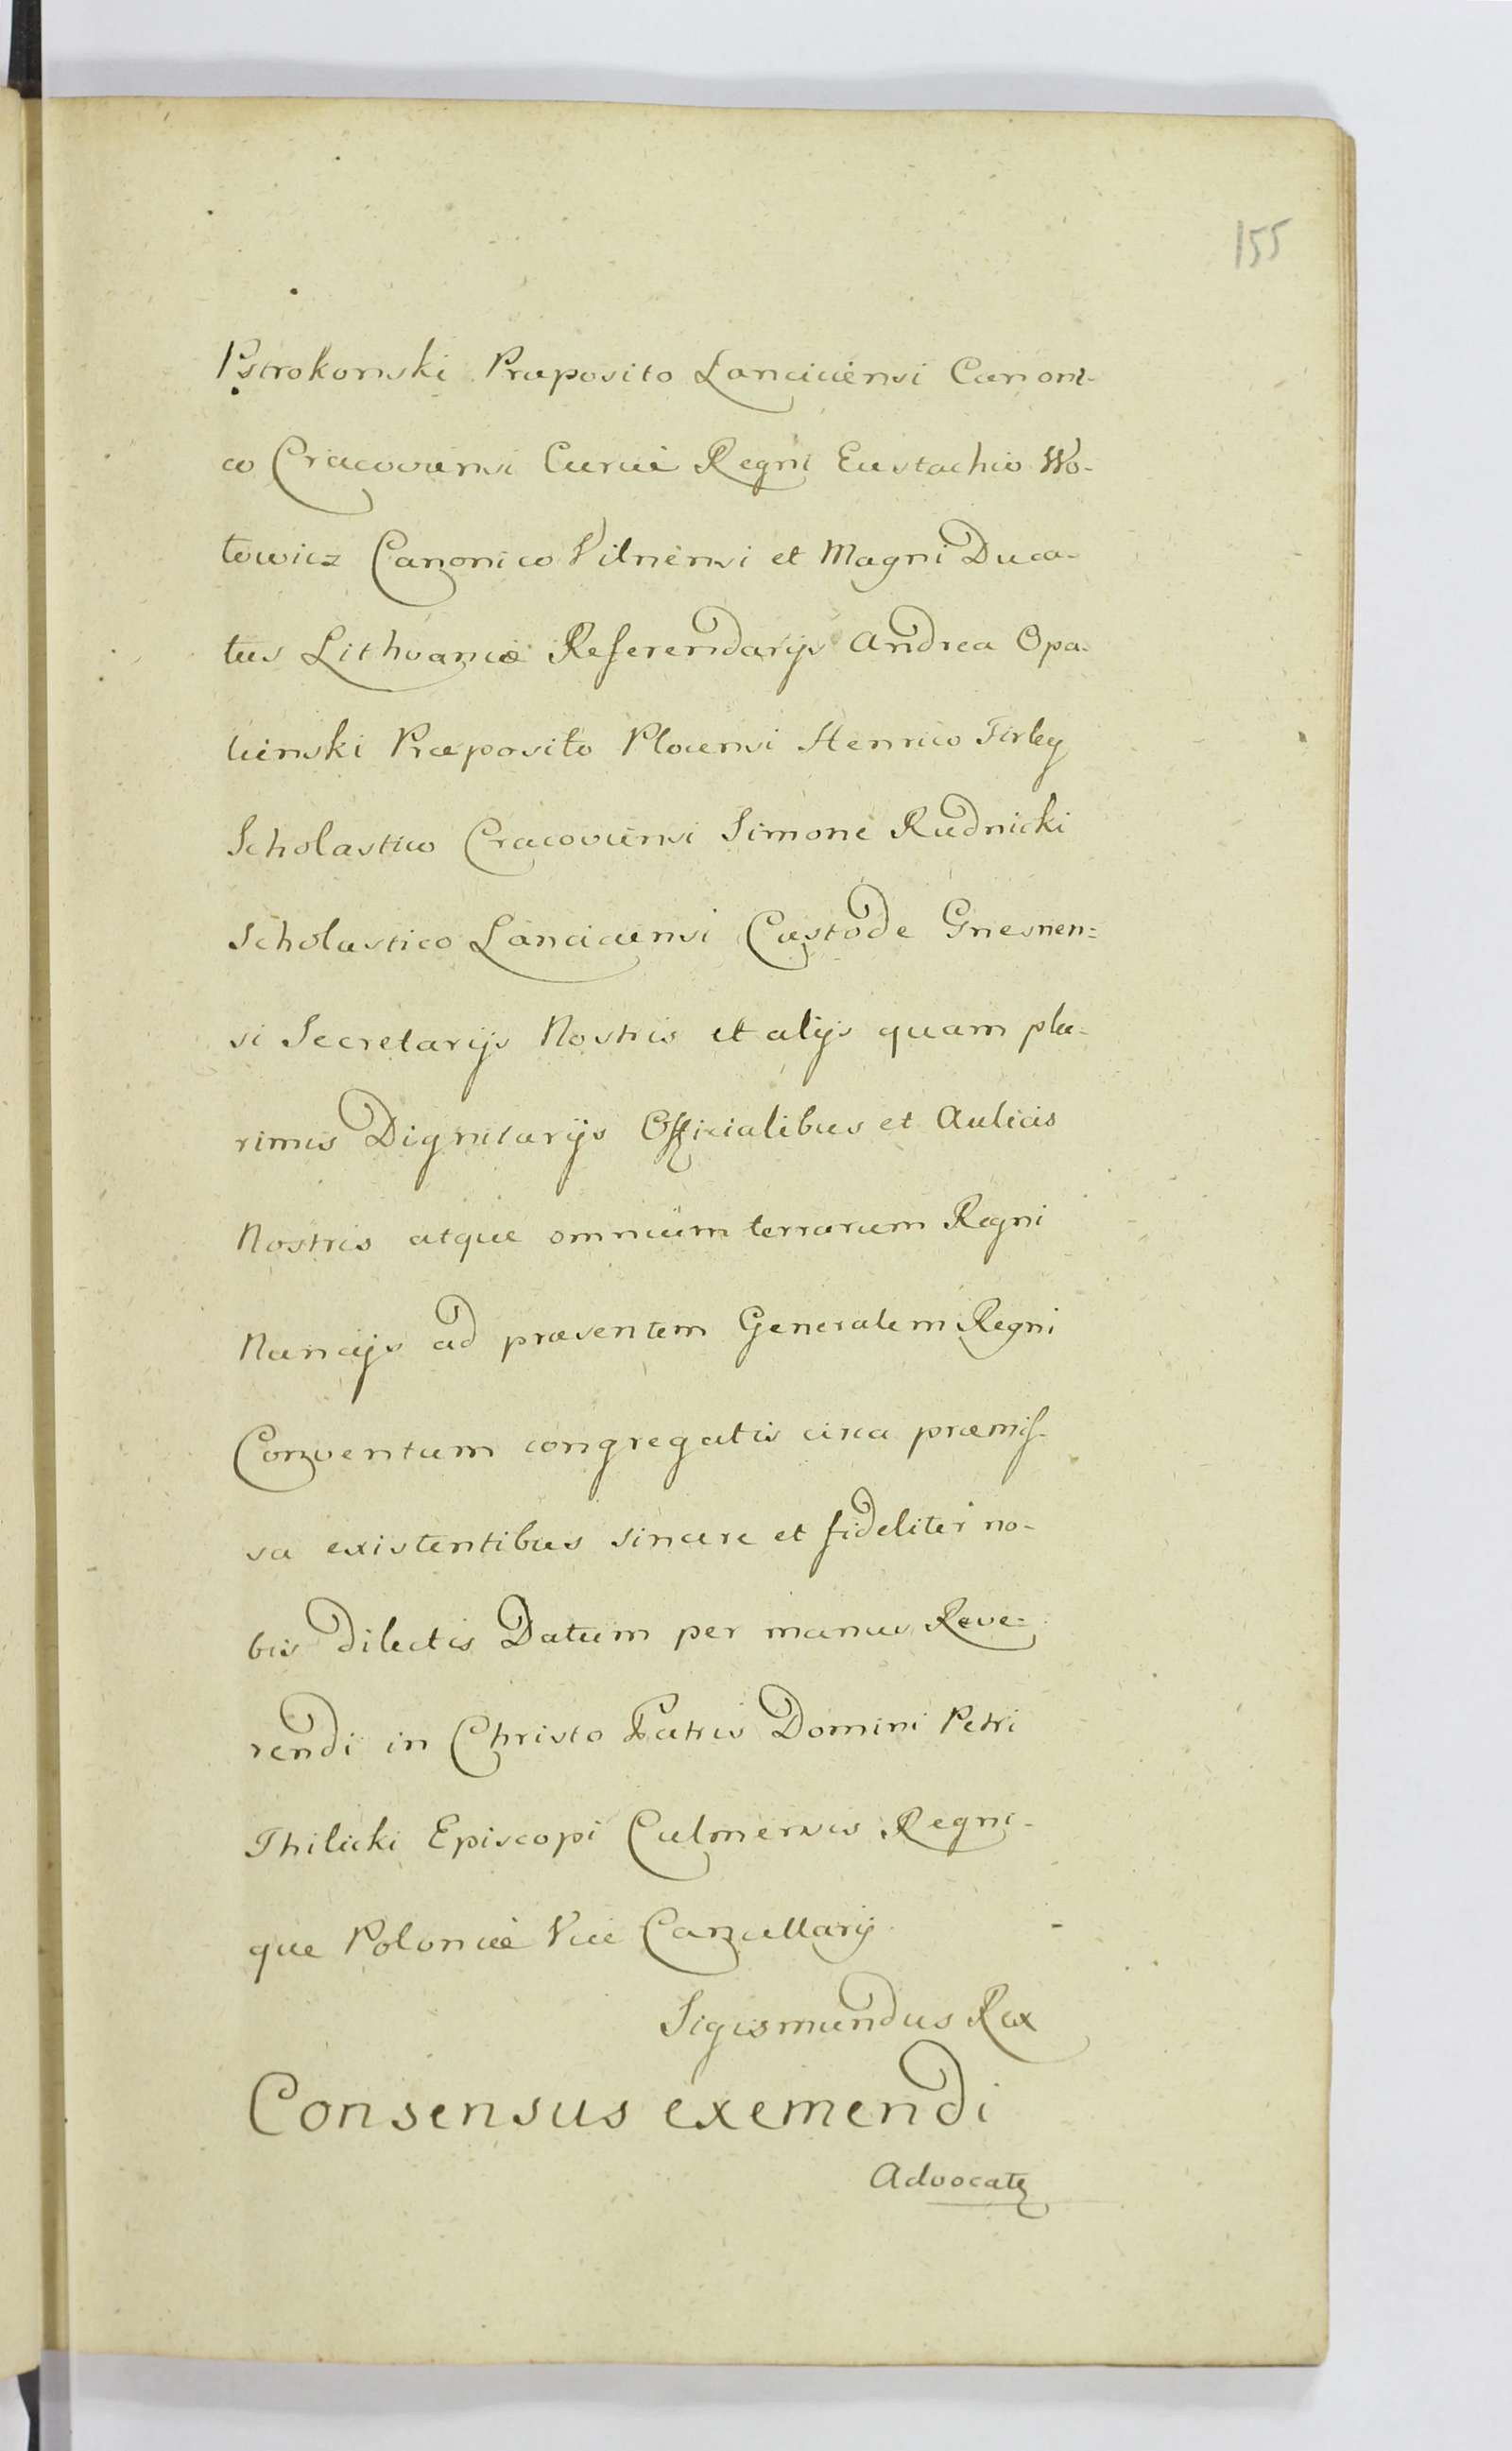 155
Pstrokonski Præposito Lanciciensi Canoni-
co Cracoviensi Curiæ Regni Eustachio Wo-
towicz Canonico Vilnensi et Magni Duca-
tus Lithvaniæ Referendarijs Andrea Opa-
lienski Præposito Plocensi Henrico Firley
Scholastico Cracoviensi Simone Rudnicki
Scholastico Lanciciensi Custode Gnesnen=
si Secretarijs Nostris et alijs quam plu-
rimis Dignitarijs Officialibus et Aulicis
Nostris atque omnium terrarum Regni
Nuncijs ad præsentem Generalem Regni
Conventum congregatis circa præmis-
sa existentibus sincere et fideliter no-
bis dilectis Datum per manus Reve=
rendi in Christo Patris Domini Petri
Thilicki Episcopi Culmensis Regni-
que Poloniæ Vice Cancellarij
Sigismundus Rex
Consensus exemendi
Advocatę